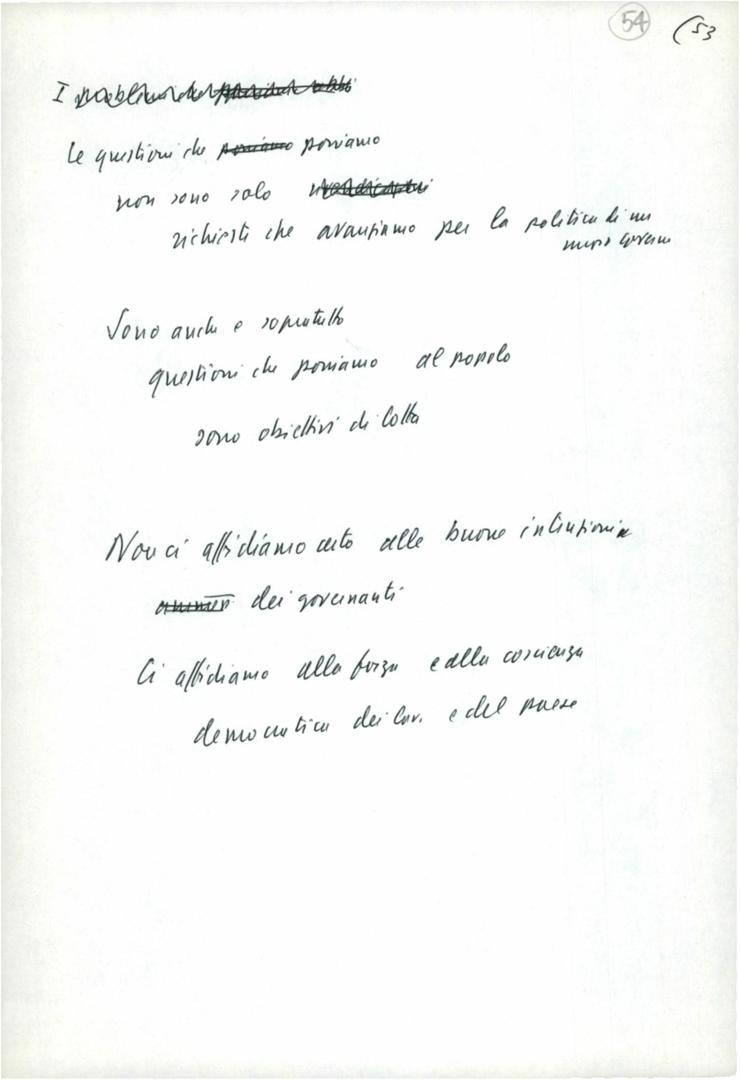 54 (53
I problemi che
Le questioni che poniamo poniamo
non sono solo rivendicazioni
richieste che avanziamo per la politica di un
nuovo governo
Sono anche e sopratutto
questioni che poniamo al popolo
sono obiettivi di lotta
Non ci affidiamo certo alle buone intenzioni
dei governanti
Ci affidiamo alla forza e alla coscienza
democratica dei lav. e del paese